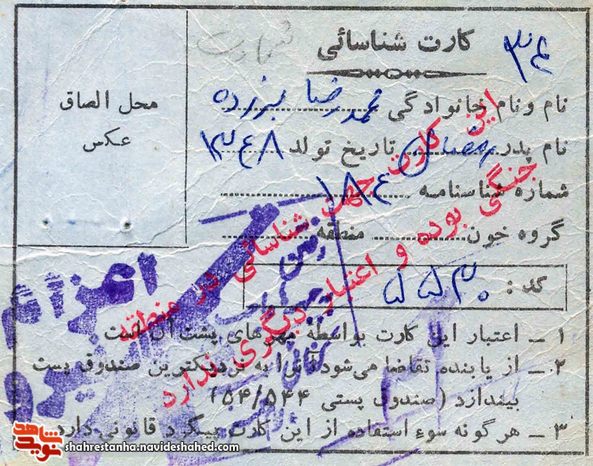 کارت شناسائی
۳۴
محل الصاق
عکس
نام ونام خانوادگی محمدرضا
نام پدر رمضان تاریخ تولد ۱۳۴۸
شماره شناسنامه ۱۸۴
گروه خون منطقه
کد : ۵۵۳۰
۱ – اعتبار این کارت بواسطه مهرهای پشت آن است
۲ – از یابنده تقاضا می‌شود آنرا به نزدیکترین صندوق پست
بیندازد (صندوق پستی ۵۴/۵۴۴)
۳ – هرگونه سوء استفاده از این کارت پیگرد قانونی دارد
این کارت جهت شناسائی در منطقه
جنگی بوده و اعتبار دیگری ندارد
اعزام
نوید شاهد
shahrestanha.navideshahed.com